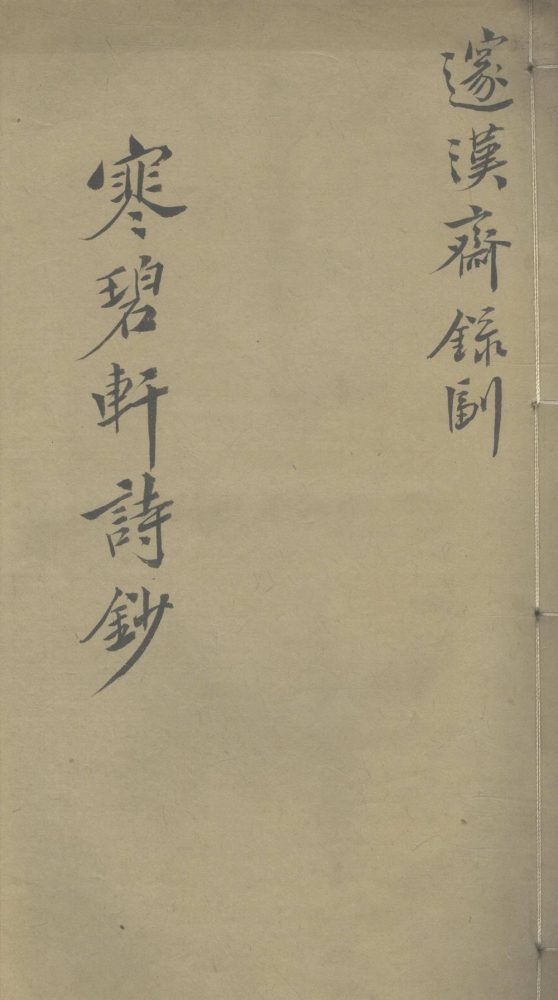 邃漢齋錄副
寒碧軒詩鈔